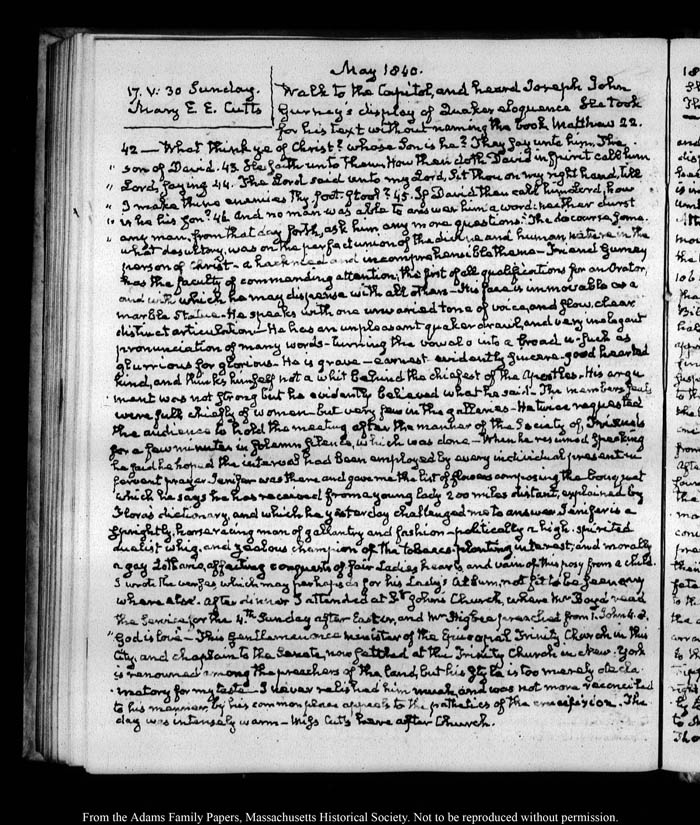 May 1840.
17. V: 30 Sunday. Walk to the Capitol, and heard Joseph John
Mary E. E. Cutts Gurney's display of Quaker eloquence He took
for his text without naming the book Matthew 22.
42 — What think ye of Christ? whose Son is he? They say unto him, The
" son of David. 43. He saith unto them, How then doth David in Spirit call him
" Lord, saying 44. The Lord said unto my Lord, Sit thou on my right hand, till
" I make thine enemies thy foot-stool? 45. If David then call him Lord, how
" is he his son? 46 and no man was able to answer him a word: neither durst
" any man, from that day forth, ask him any more questions. The discourse, some
what desultory, was on the perfect union of the divine and human nature in the
person of Christ — a hackneied and incomprehensible theme — Friend Gurney
has the faculty of commanding attention, the first of all qualifications for an Orator,
and with which he may dispense with all others — His face is immovable as a
marble Statue. He speaks with one unvaried tone of voice, and slow, clear
distinct articulation — He has an unpleasant quaker drawl, and very inelegant
pronunciation of many words — turning the vowel o into a broad u — such as
glurrious for glorious — He is grave — earnest evidently sincere — good hearted
kind, and thinks himself not a whit behind the chiefest of the Apostles — His argu
ment was not strong but he evidently believed what he said. The members seats
were full chiefly of women — but very few in the galleries — He twice requested
the audience to hold the meeting after the manner of the Society of, Friends
for a few minutes in solemn silence, which was done — When he resumed speaking
he said he hoped the interval had been employed by every individual present in
fervent prayer. Jenifer was there and gave me the list of flowers composing the bouquet
which he says he has received from a young lady 200 miles distant, explained by
Flora's dictionary, and which he yesterday challenged me to answer. Jenifer is a
sprightly, horse racing man of gallantry and fashion — politically a high-spirited
duelist whig, and zealous champion of the tobacco-planting interest, and morally
a gay Lothario, affecting conquests of fair Ladies hearts and vain of this posy from a child.
I wrote the verses which may perhaps do for his Lady's Album, not fit to be seen any
where else. After dinner I attended at St. John's Church, where Mr Boyd read
the Service for the 4th Sunday after Easter, and Mr Higbee preached from 1. John 4. 8.
" God is love — This Gentleman once minister of the Episcopal Trinity Church in this
City, and chaplain to the Senate, now settled at the Trinity Church in New-York
is renowned among the preachers of the land, but his style is too merely decla
matory for my taste — I never relished him much, and was not more reconciled
to his manner, by his common place appeals to the pathetics of the crucifixion. The
day was intensely warm — Miss Cutts here after Church.
From the Adams Family Papers, Massachusetts Historical Society. Not to be reproduced without permission.